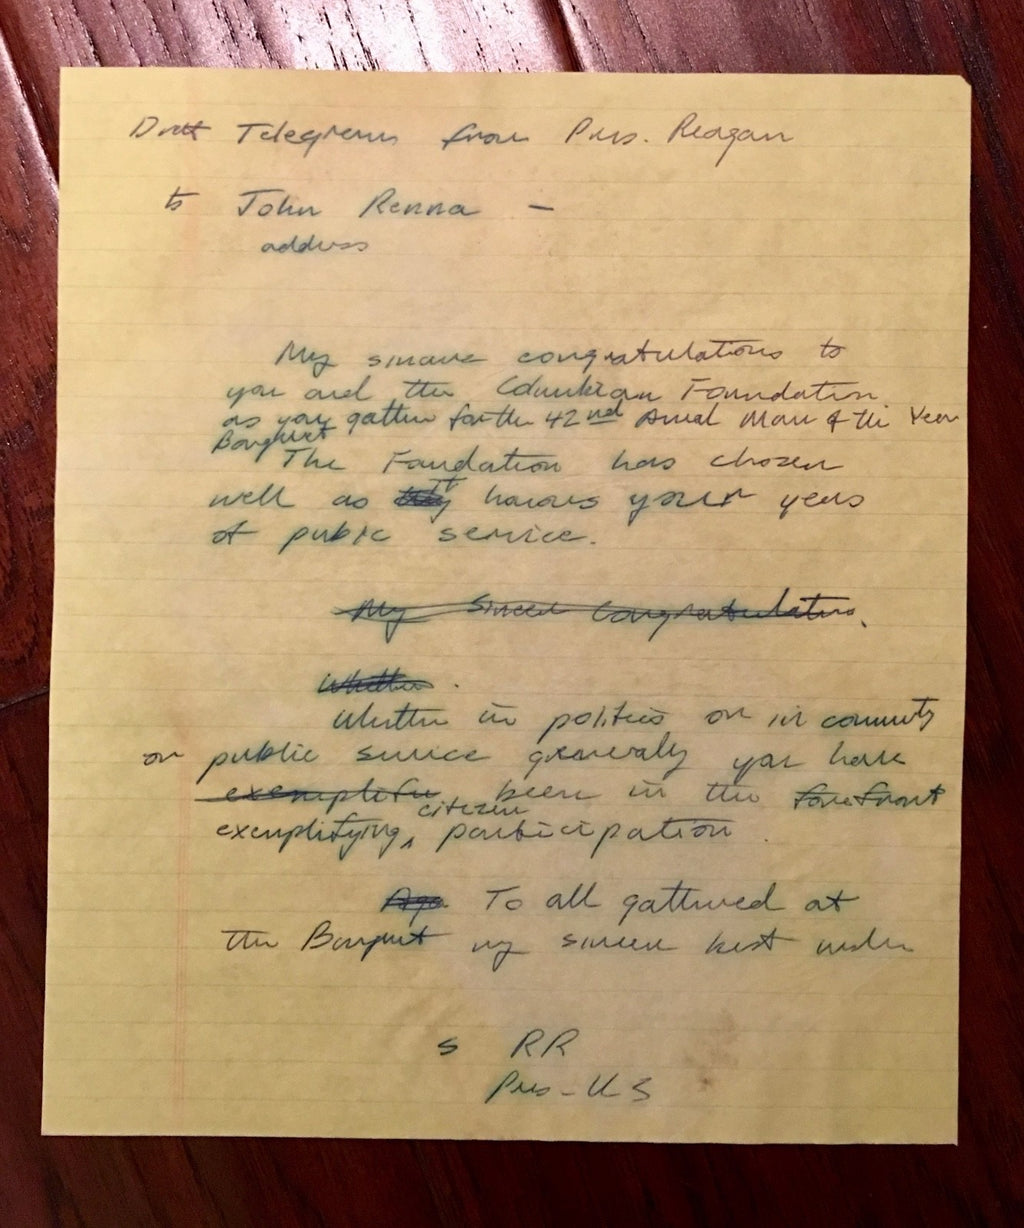 Draft Telegram from Pres. Reagan
to John Renna —
address
My sincere congratulations to
you and the Columbian Foundation
as you gather for the 42nd Annual Man of the Year
Banquet
The Foundation has chosen
well as it honors your years
of public service.
My Sincere Congratulations.
Whether.
Whether in politics or in community
or public service generally you have
exemplife been in the forefront
citizen
exemplifying participation
Aga To all gathered at
the Banquet my sincere best wishes
s RR
Pres - US